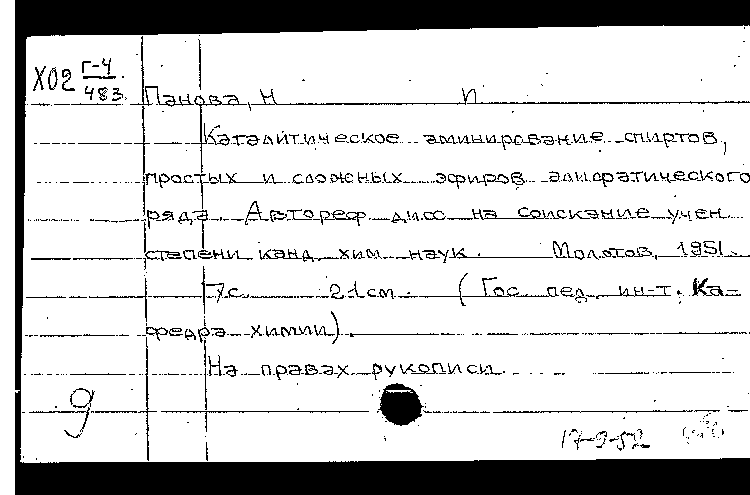 Х02 Г-4
483
Панова, Н П
Каталитическое аминирование спиртов,
простых и сложных эфиров алифатического
ряда. Автореф дисс на соискание учен
степени канд хим наук. Молотов, 1951.
7с. 21см. (Гос. пед. ин-т. Ка-
федра химии).
На правах рукописи.
9
17-9-52